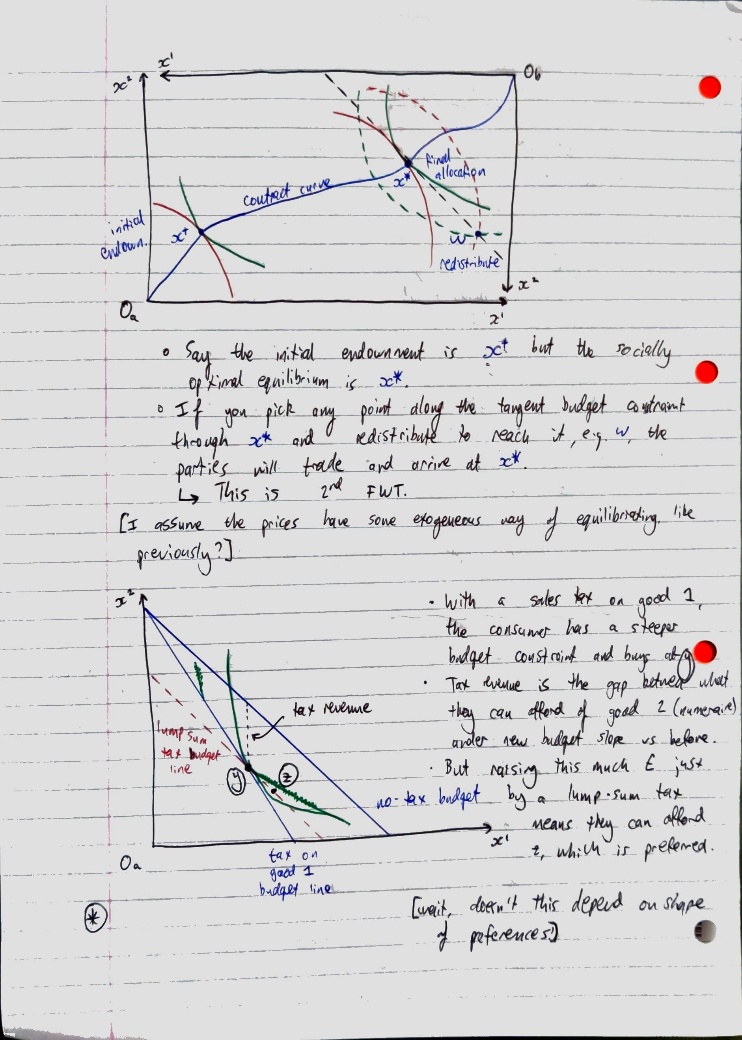 x¹
x²
O_b
final
allocation
x*
contract curve
initial
endown.
x†
w
redistribute
x²
O_a
x¹
∘ Say the initial endownment is x† but the socially
optimal equilibrium is x*.
∘ If you pick any point along the tangent budget constraint
through x* and redistribute to reach it, e.g. w, the
parties will trade and arrive at x*.
↳ This is 2nd FWT.
[I assume the prices have some exogeneous way of equilibriating, like
previously?]
x²
tax revenue
lump sum
tax budget
line
y
z
no-tax budget
x¹
O_a
tax on
good 1
budget line
· With a sales tax on good 1,
the consumer has a steeper
budget constraint and buys at y
· Tax revenue is the gap between what
they can afford of good 2 (numeraire)
under new budget slope vs before.
· But raising this much £ just
by a lump-sum tax
means they can afford
z, which is preferred.
*
[wait, doesn't this depend on shape
of preferences?]